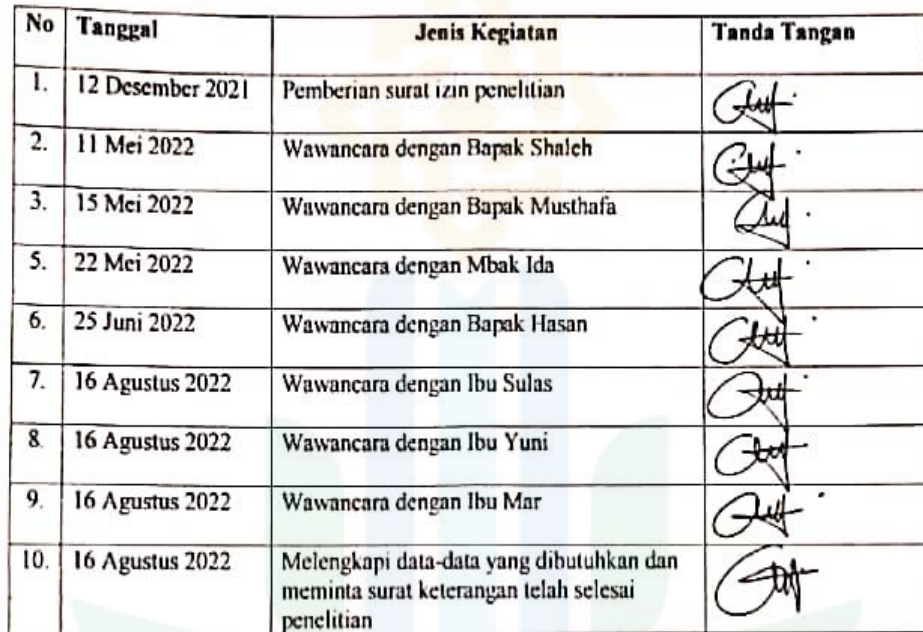 No Tanggal Jenis Kegiatan Tanda Tangan
1. 12 Desember 2021 Pemberian surat izin penelitian
2. 11 Mei 2022 Wawancara dengan Bapak Shaleh
3. 15 Mei 2022 Wawancara dengan Bapak Musthafa
5. 22 Mei 2022 Wawancara dengan Mbak Ida
6. 25 Juni 2022 Wawancara dengan Bapak Hasan
7. 16 Agustus 2022 Wawancara dengan Ibu Sulas
8. 16 Agustus 2022 Wawancara dengan Ibu Yuni
9. 16 Agustus 2022 Wawancara dengan Ibu Mar
10. 16 Agustus 2022 Melengkapi data-data yang dibutuhkan dan
meminta surat keterangan telah selesai
penelitian